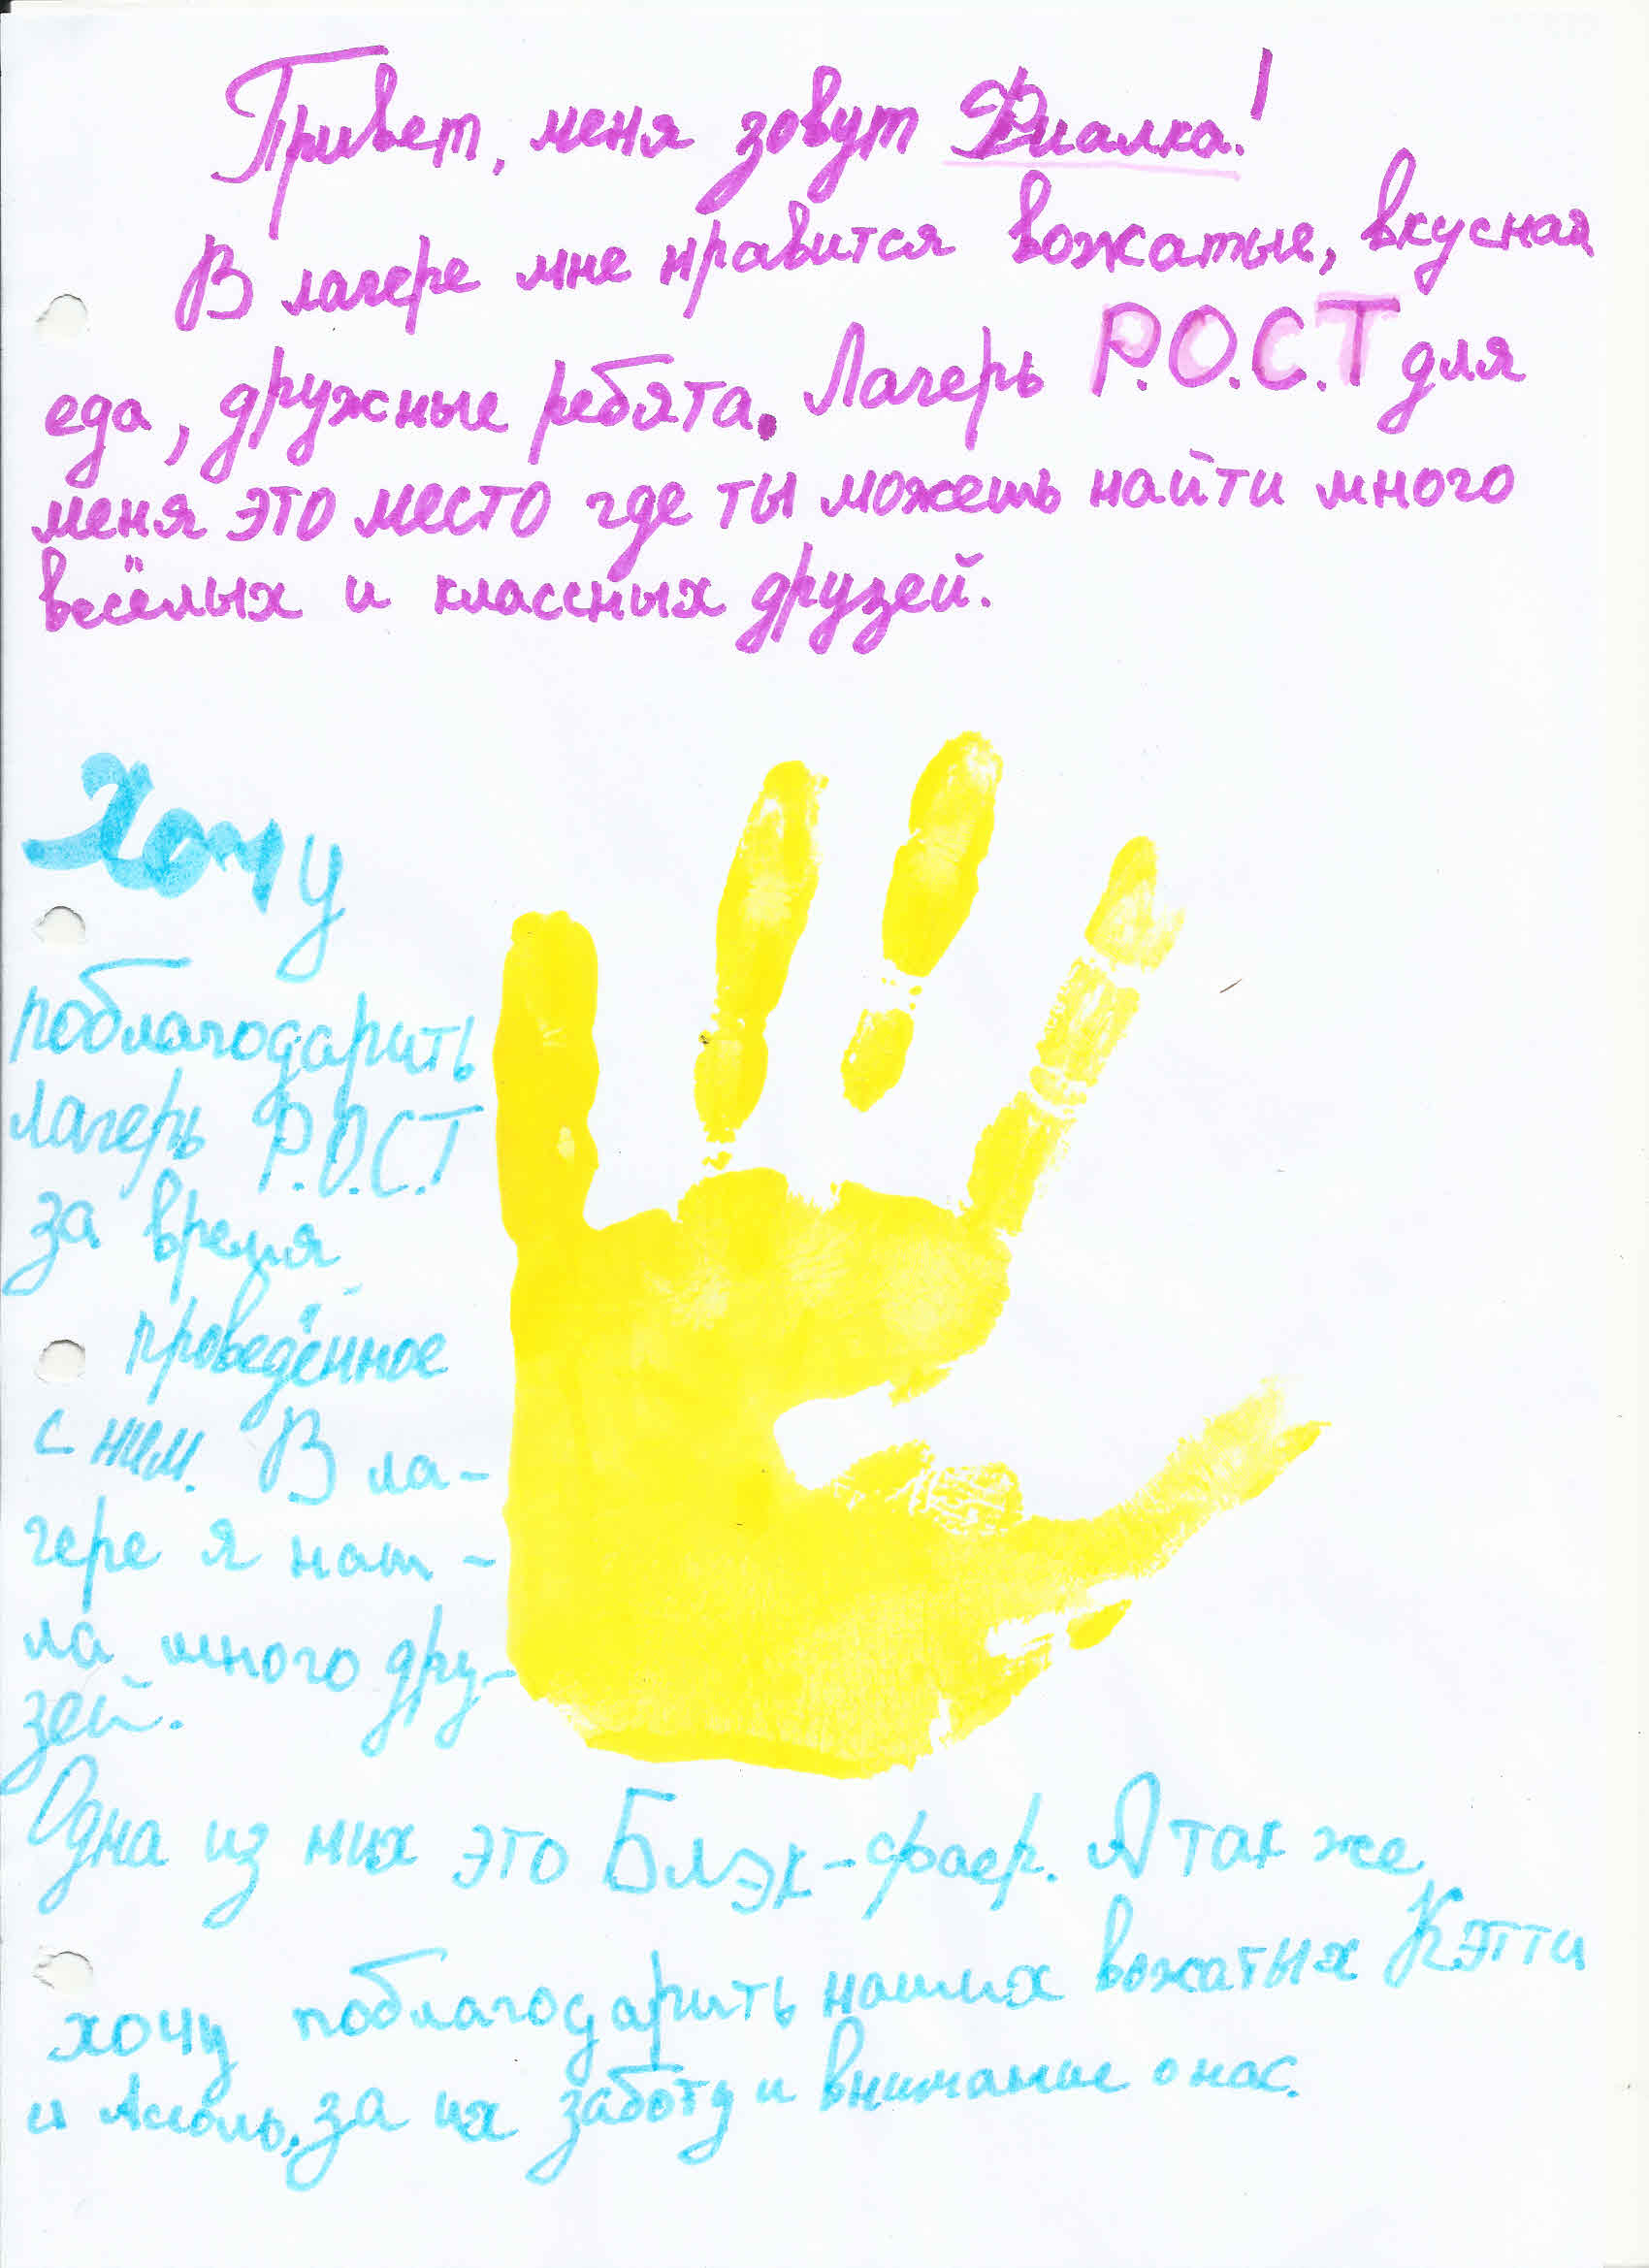 Привет, меня зовут Фиалка!
В лагере мне нравится вожатые, вкусная
еда, дружные ребята. Лагерь Р.О.С.Т для
меня это место где ты можешь найти много
весёлых и классных друзей.
Хочу
поблагодарить
лагерь Р.О.С.Т
за время
проведённое
с ним. В ла-
гере я наш-
ла много дру-
зей.
Одна из них это Блэк-фаер. А так же
хочу поблагодарить наших вожатых Кэтти
и Асоль, за их заботу и внимание о нас.